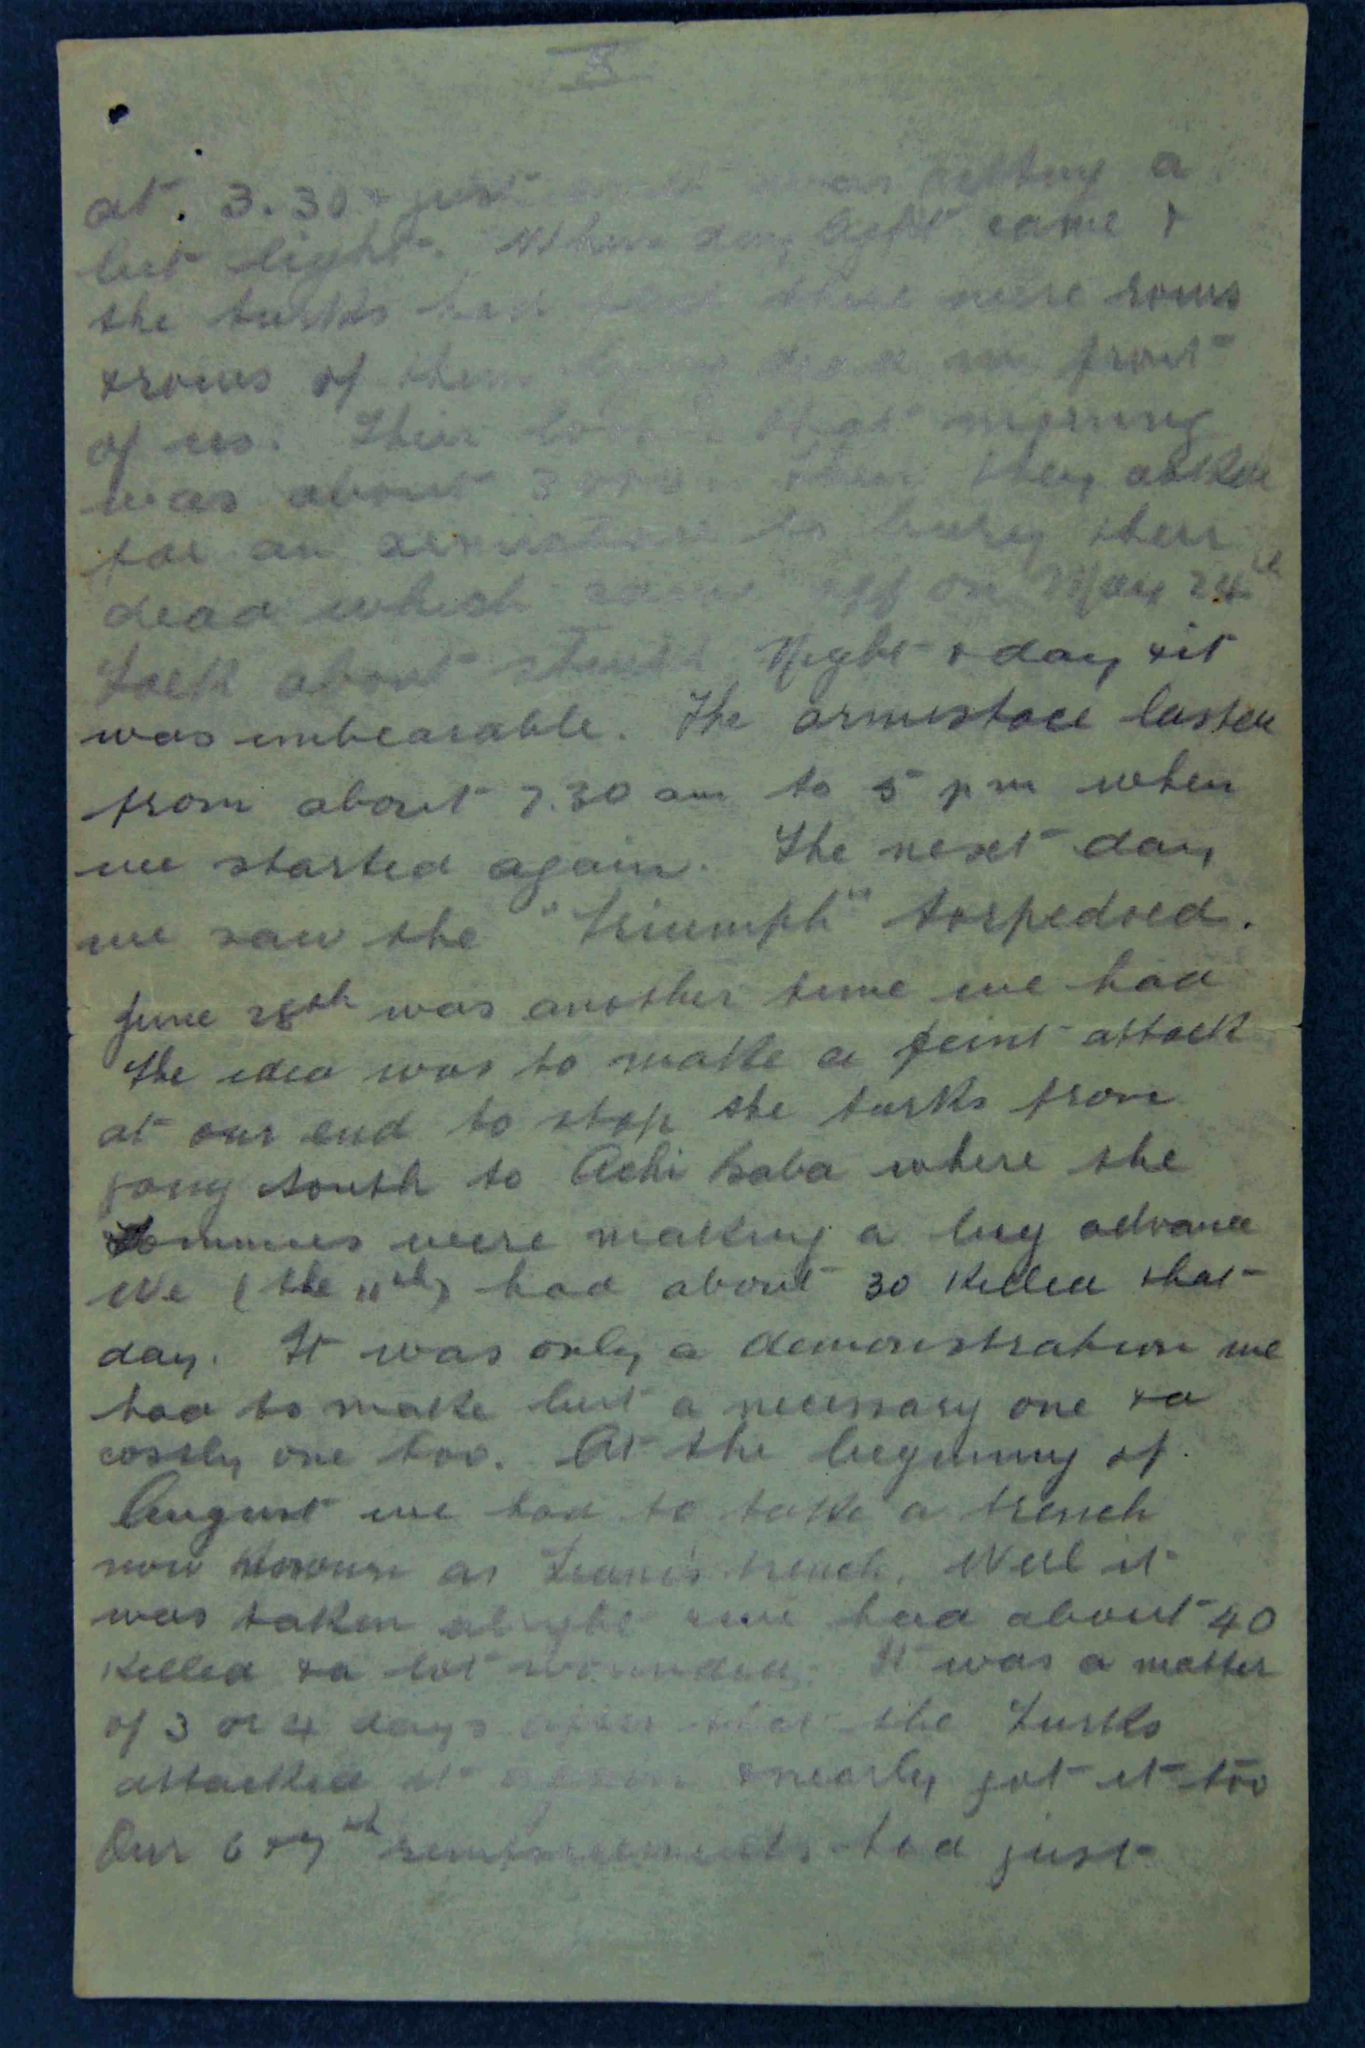 at 3.30 & just as it was getting a
bit light. When day light came &
the turks had fled there were rows
& rows of them dead in front
of us. Their losses that morning
was about 3000 then they asked
for an armistice to bury their
dead which came off on May 24th
Talk about stink. Night & day & it
was unbearable. The armistace lasted
from about 7.30 am to 5 pm when
we started again. The next day
we saw the "Triumph" torpedoed.
June 28th was another time we had
the idea was to make a feint attack
at our end to stop the turks from
going south to Achi Baba where the
Tommies were making a big advance
We (the 11th) had about 30 killed that
day. It was only a demonstration we
had to make but a necessary one & a
costly one too. At the beginning of
August we had to take a trench
now known as Leane's trench. Well it
was taken alright & we had about 40
killed & a lot wounded. It was a matter
of 3 or 4 days after that the Turks
attacked it again & nearly got it too
Our 6 & 7th reinforcements had just